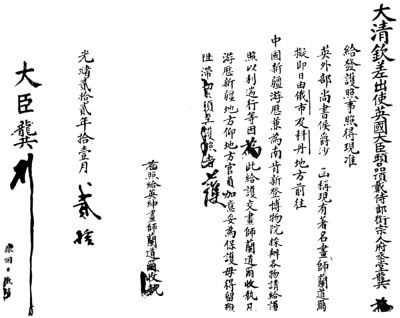 大清欽差出使英國大臣頭品頂戴侍郎銜宗人府堂龔 為
給發護照事照得現准
英外部尚書侯爵沙 函稱現有著名畫師蘭道爾
擬即日由俄市及科丹地方前往
中國新疆游歷兼為南肯新登博物院採辦各物請給護
照以利遄行等因為此給護交畫師蘭道爾收執凡
游歷新疆地方仰地方官員加應妥為保護毋得留難
阻滯須至護照者 護
右照給英紳畫師蘭道爾收執
光緒貳拾貳年拾壹月 貳拾
大臣龔
回日繳銷